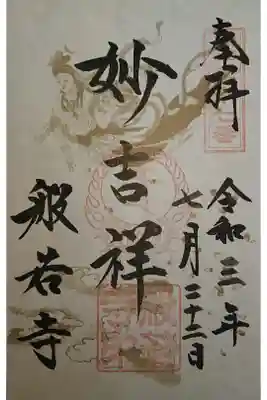 奉拝
令和三年
七月二十二日
妙吉祥
般若寺